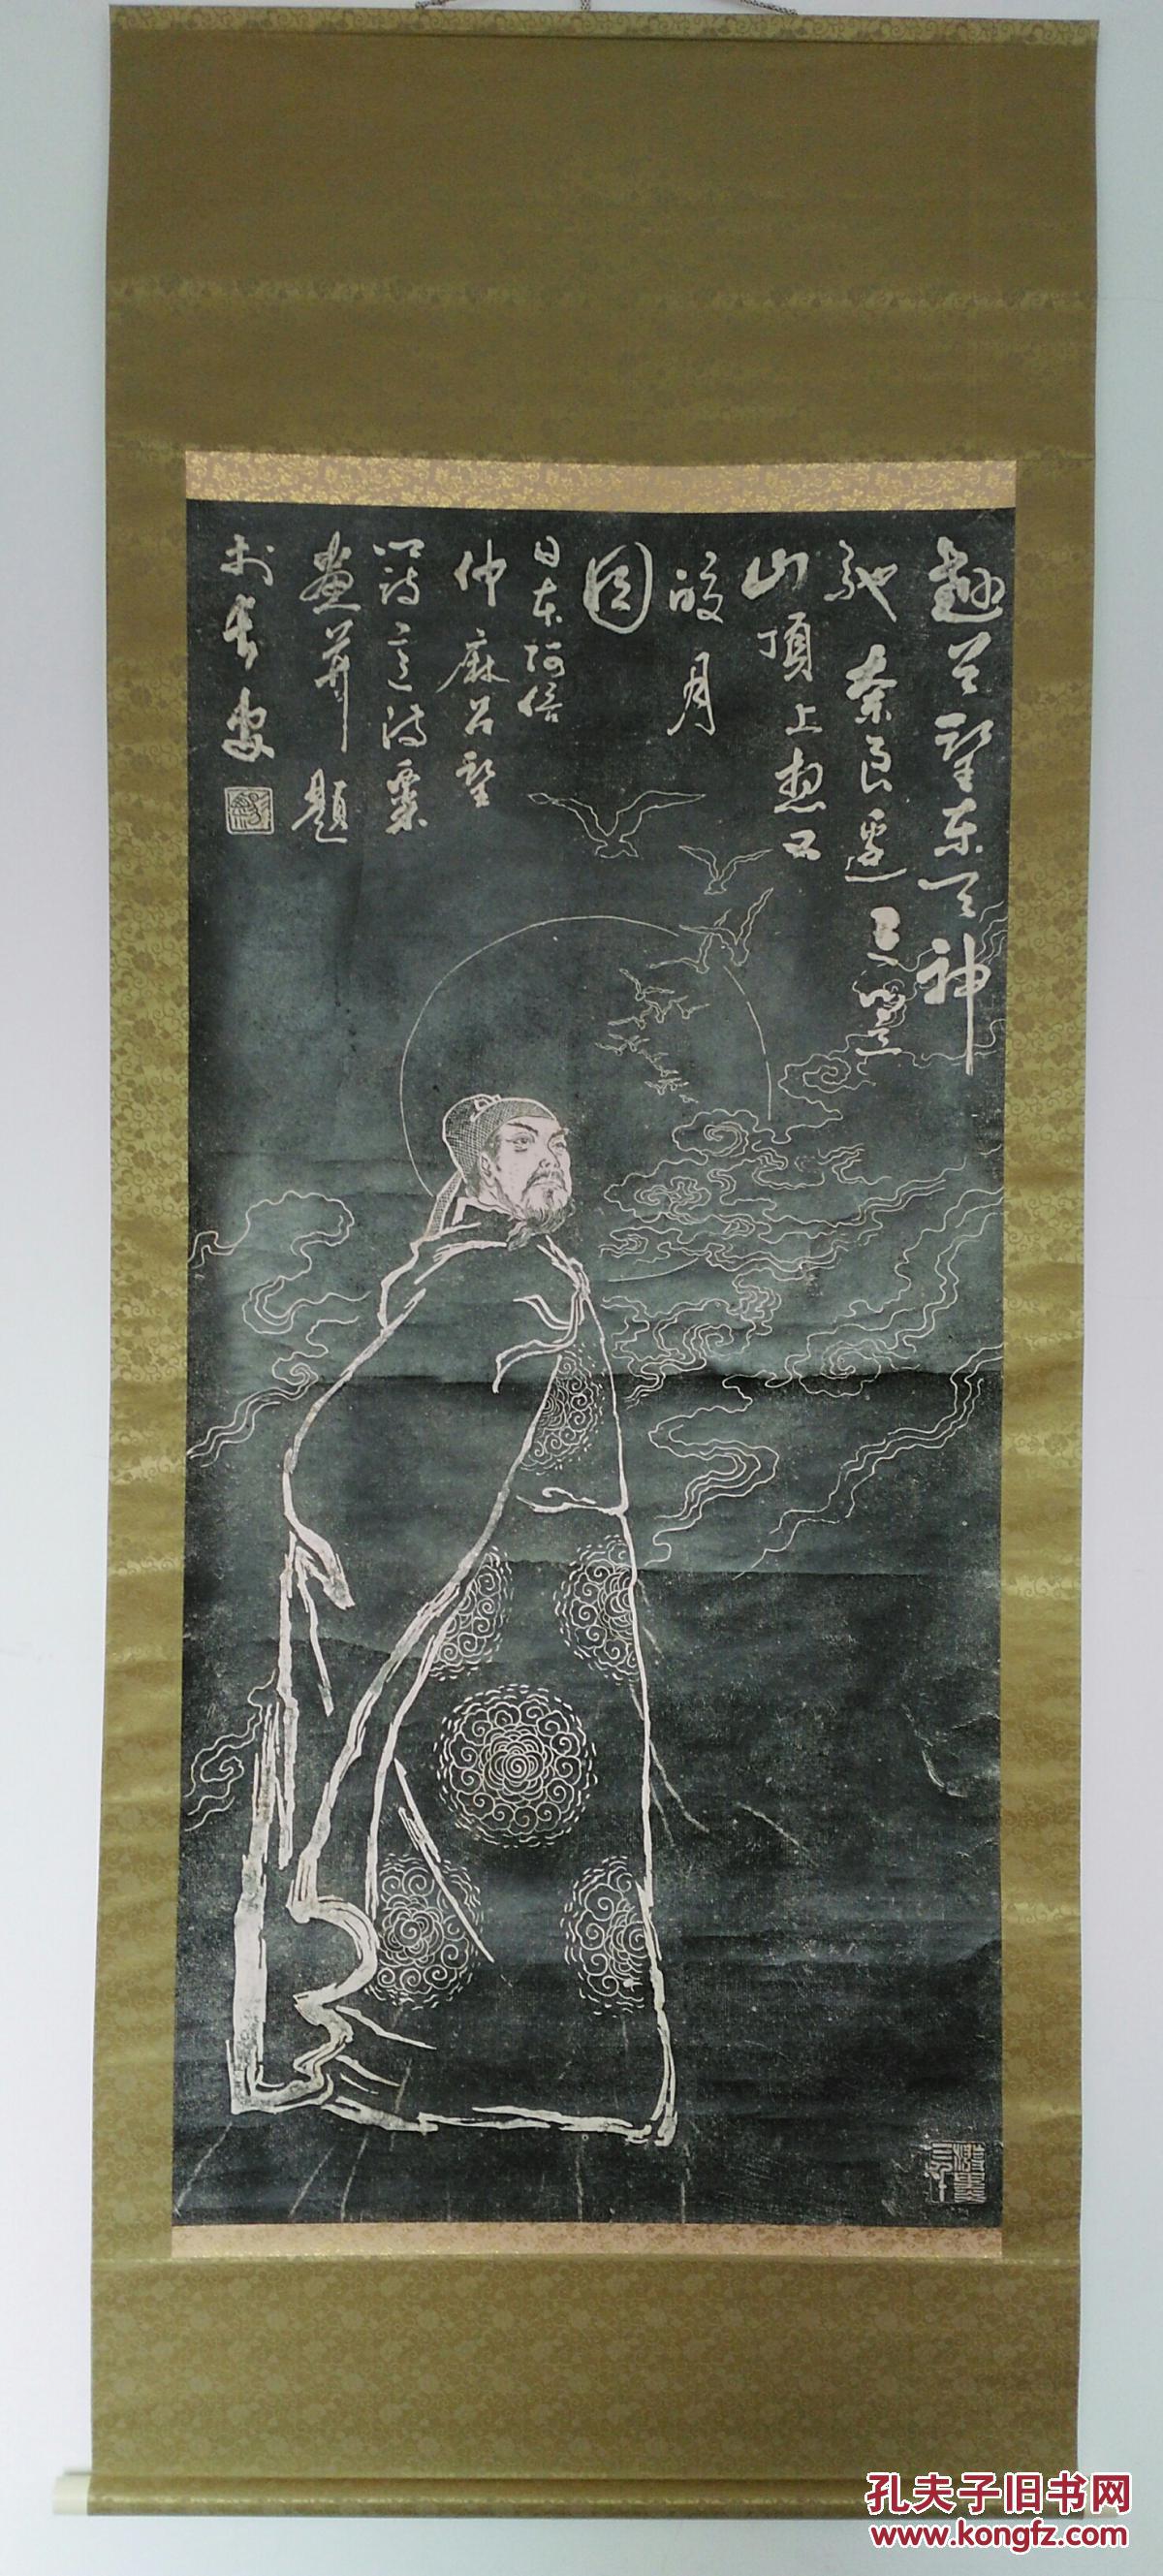 翘首望东天神
驰奈良边三笠
山頂上想又
皎月
圆
日本阿倍
仲麻吕望
诗意海粟
畫并題
於長安
孔夫子旧书网
www.kongfz.com